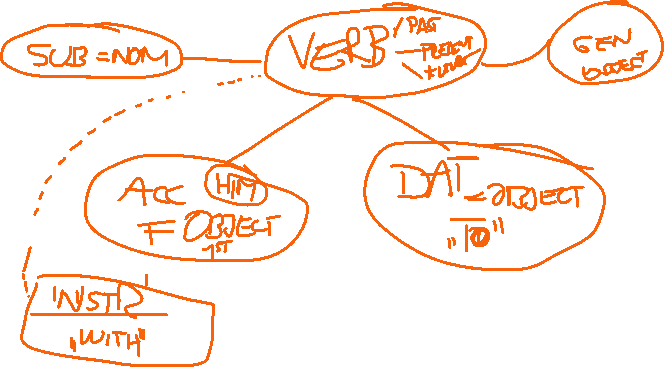 SUB = NOM
VERB
/ PAS
PRESENT
GEN
OBJECT
ACC HIM
= OBJECT
1ST
DAT = OBJECT
INSTR
"WITH"